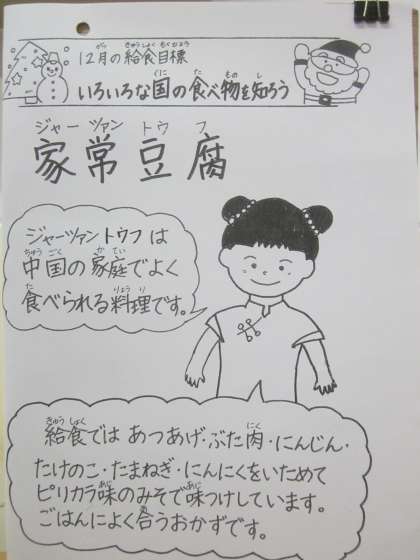 12月の給食目標
いろいろな国の食べ物を知ろう
家常豆腐
ジャーツァントウフ
ジャーツァントウフは
中国の家庭でよく
食べられる料理です。
給食では あつあげ・ぶた肉・にんじん・
たけのこ・たまねぎ・にんにくをいためて
ピリカラ味のみそで味つけしています。
ごはんによく合うおかずです。